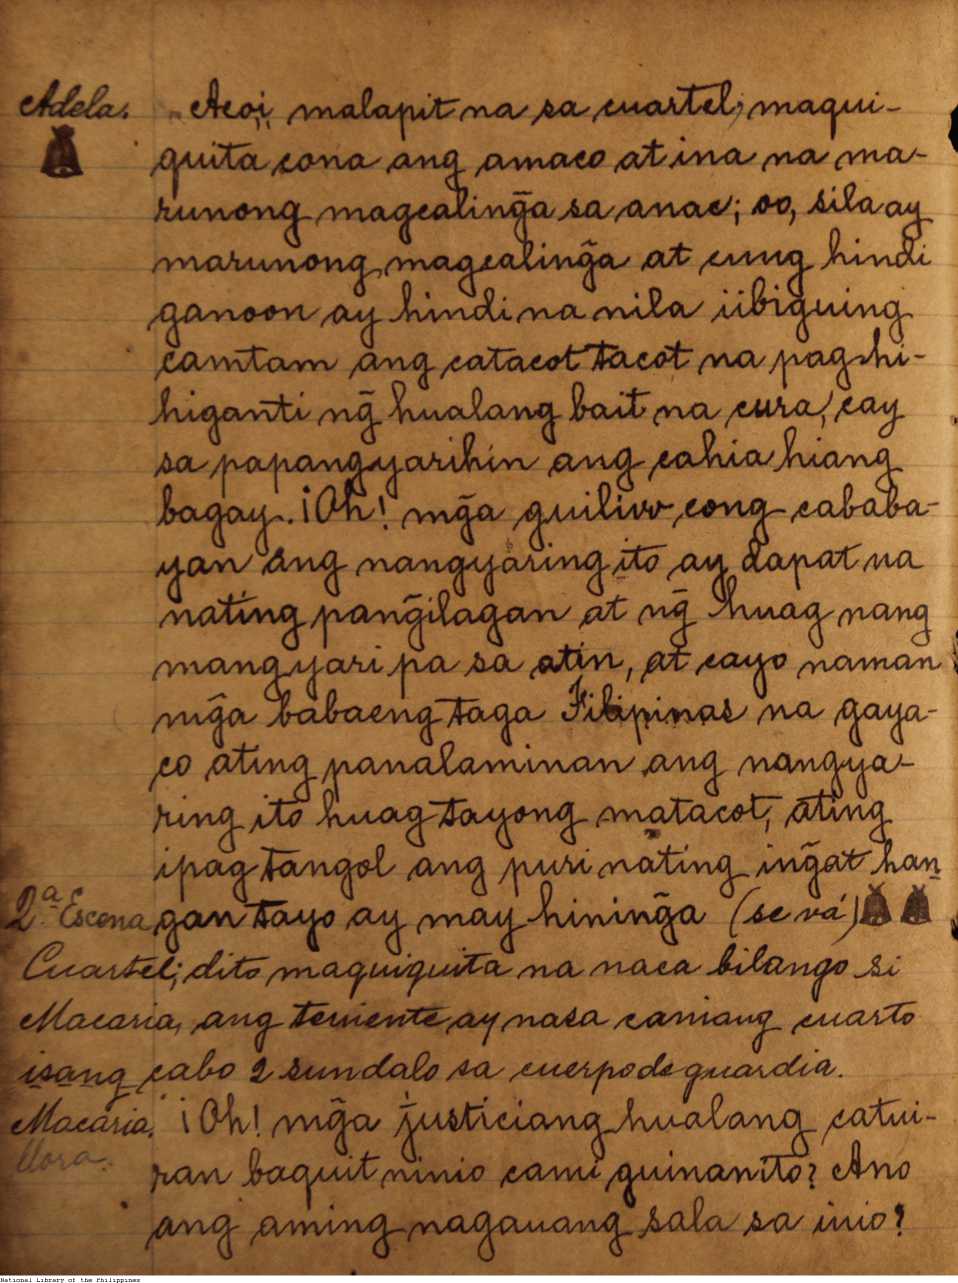 Adela. Acoi malapit na sa cuartel, maqui-
quita cona ang amaco at ina na ma-
runong magcaling̃a sa anac; oo, sila ay
marunong, magcaling̃a at cung hindi
ganoon ay hindi na nila iibiguing
camtam ang catacot tacot na pag-hi-
higanti ng̃ hualang bait na cura, cay
sa papangyarihin ang cahia hiang
bagay. ¡Oh! mg̃a guilivv cong cababa-
yan ang nangyaring ito ay dapat na
nating pang̃ilagan at ng̃ huag nang
mangyari pa sa atin, at cayo naman
mg̃a babaeng taga Filipinas na gaya-
co ating panalaminan ang nangya-
ring ito huag tayong matacot, ating
ipag tangol ang puri nating ing̃at han
2ª Escena gan tayo ay may hining̃a (se vá)
Cuartel; dito maquiquita na naca bilango si
Macaria, ang teniente, ay nasa caniang cuarto
isang cabo 2 sundalo sa cuerpo de guardia.
Macaria. ¡Oh! mg̃a justiciang hualang catui-
llora. ran baquit ninio cami guinanito? Ano
ang aming nagauang sala sa inio?
National Library of the Philippines